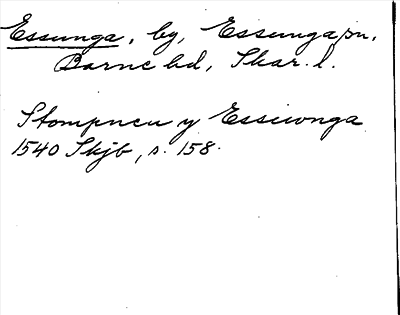 Essunga, by, Essunga sn,
Barne hd, Skar. l.
y Essiwnga
1540 Skjb, s. 158.